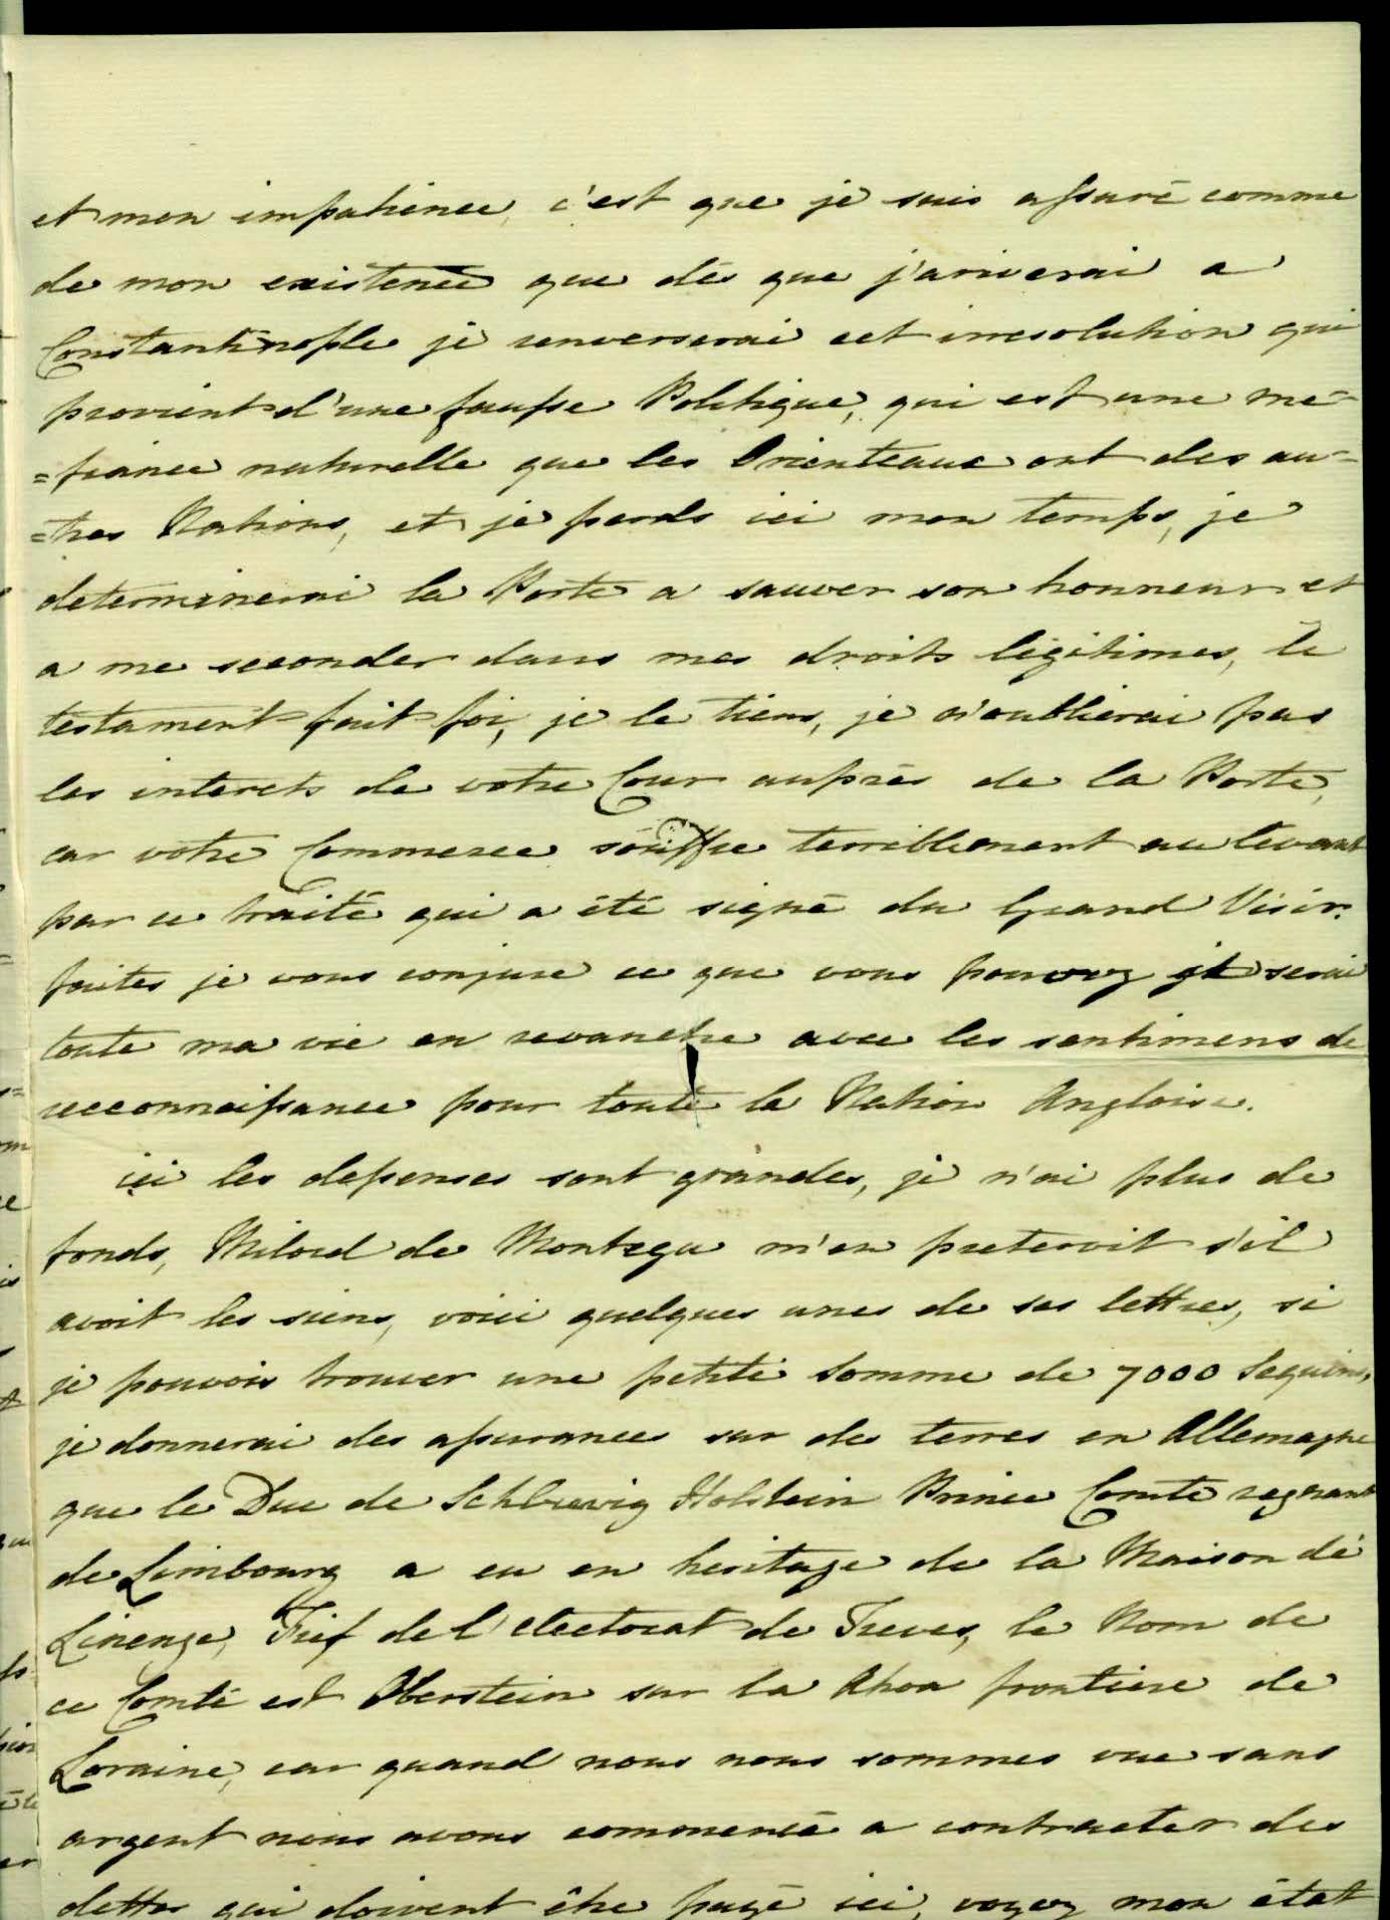 et mon impatience, c'est que je suis assuré comme
de mon existence que dès que j'ariverai a
Constantinople je renverserai cet irresolution qui
provient d'une fausse Politique, qui est une mé=
=fiance naturelle que les Orienteaux ont des au=
=tres Nations, et je perds ici mon temps, je
determinerai la Porte a sauver son honneur et
a me seconder dans mes droits légitimes, le
testament fait foi, je le tiens, je n'oublierai pas
les interets de votre Cour auprès de la Porte,
car votre Commerce souffre terriblement au levant
par ce traité qui a été signé du Grand Visir.
faites je vous conjure ce que vous pouvez je serai
toute ma vie en revanche avec les sentimens de
reconnaissance pour toute la Nation Angloise.
ici les depenses sont grandes, je n'ai plus de
fonds, Milord de Montegu m'en preteroit s'il
avoit les siens, voici quelques unes de ses lettres, si
je pouvois trouver une petite somme de 7000 Sequins,
je donnerai des assurances sur des terres en Allemagne
que le Duc de Schlesvig Holstein Prince Comte regnant
de Limbourg a eu en heritage de la Maison de
Linenge, Fief de l'electorat de Treves, le Nom de
ce Comté est Oberstein sur la frontiere de
Loraine, car quand nous nous sommes vue sans
argent nous avons commencé a contracter des
dettes qui doivent être payé ici, voyez mon état